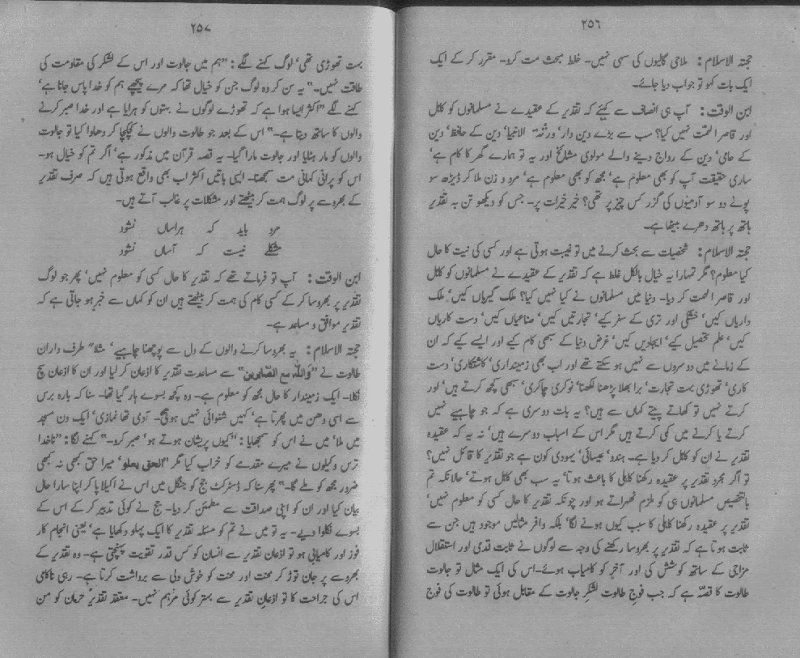 ۲۵۶
حجتہ الاسلام: ملاحی گالیوں کی سی نہیں۔ خلط مبحث مت کرو۔ مقرر کر کے ایک
ایک بات کہو تو جواب دیا جائے۔
ابن الوقت: آپ ہی انصاف سے کہئے کہ تقدیر کے عقیدے نے مسلمانوں کو کاہل
اور قاصر الہمت نہیں کیا؟ سب سے بڑے دین دار، ورثتہ الانبیا، دین کے حافظ، دین
کے حامی، دین کے رواج دینے والے مولوی مشائخ اور یہ تو ہمارے گھر کا کام ہے،
ساری حقیقت آپ کو بھی معلوم ہے، مجھ کو بھی معلوم ہے، مرد و زن ملا کر ڈیڑھ سو
پونے دو سو آدمیوں کی گزر کس چیز پر تھی؟ خیر خیرات پر۔ جس کو دیکھو تن بہ تقدیر
ہاتھ پر ہاتھ دھرے بیٹھا ہے۔
حجتہ الاسلام: شخصیات سے بحث کرنے میں تو غیبت ہوتی ہے اور کسی کی نیت کا حال
کیا معلوم؟ مگر تمہارا یہ خیال بالکل غلط ہے کہ تقدیر کے عقیدے نے مسلمانوں کو کاہل
اور قاصر الہمت کر دیا۔ دنیا میں مسلمانوں نے کیا نہیں کیا؟ ملک گیریاں کیں، ملک
داریاں کیں، خشکی اور تری کے سفر کیے، تجارتیں کیں، صناعیاں کیں، دست کاریاں
کیں، علم تحصیل کیے، ایجادیں کیں، غرض دنیا کے سبھی کام کیے اور ایسے کیے کہ ان
کے زمانے میں دوسروں سے نہیں ہو سکتے تھے اور اب بھی زمینداری، کاشتکاری، دست
کاری، تھوڑی بہت تجارت، برا بھلا پڑھنا لکھنا، نوکری چاکری، سبھی کچھ کرتے ہیں، اور
کرتے نہیں تو کھاتے پیتے کہاں سے ہیں؟ یہ بات دوسری ہے کہ جو چاہیے نہیں
کرتے یا کرنے میں کمی کرتے ہیں مگر اس کے اسباب دوسرے ہیں، نہ یہ کہ عقیدہ
تقدیر نے ان کو کاہل کر دیا ہے۔ ہندو، عیسائی، یہودی کون ہے جو تقدیر کا قائل نہیں؟
تو اگر مجرد تقدیر پر عقیدہ رکھنا کاہلی کا باعث ہوتا، یہ سب بھی کاہل ہوتے، حالانکہ تم
بالتخصیص مسلمانوں ہی کو ملزم ٹھہراتے ہو اور چونکہ تقدیر کا حال کسی کو معلوم نہیں،
تقدیر پر عقیدہ رکھنا کاہلی کا سبب کیوں ہونے لگا، بلکہ وافر مثالیں موجود ہیں جن سے
ثابت ہوتا ہے کہ تقدیر پر بھروسا رکھنے کی وجہ سے لوگوں نے ثابت قدمی اور استقلال
مزاجی کے ساتھ کوشش کی اور آخر کو کامیاب ہوئے۔ اس کی ایک مثال تو جالوت
طالوت کا قصّہ ہے کہ جب فوج طالوت لشکر جالوت کے مقابل ہوئی تو طالوت کی فوج
۲۵۷
بہت تھوڑی تھی، لوگ کہنے لگے: "ہم میں جالوت اور اس کے لشکر کی مقاومت کی
طاقت نہیں۔" یہ سن کر وہ لوگ جن کو خیال تھا کہ مرے پیچھے ہم کو خدا پاس جانا ہے،
کہنے لگے "اکثر ایسا ہوا ہے کہ تھوڑے لوگوں نے بہتوں کو ہرایا ہے اور خدا صبر کرنے
والوں کا ساتھ دیتا ہے۔" اس کے بعد جو طالوت والوں نے کچکچا کر دھاوا کیا تو جالوت
والوں کو مار ہٹایا اور جالوت مارا گیا۔ یہ قصہ قرآن میں مذکور ہے، اگر تم کو خیال ہو۔
اس کو پرانی کہانی مت سمجھنا۔ ایسی باتیں اکثر اب بھی واقع ہوتی ہیں کہ صرف تقدیر
کے بھروسے پر لوگ ہمت کر بیٹھتے اور مشکلات پر غالب آتے ہیں۔
مرد باید کہ ہراساں نشود
مشکلے نیست کہ آساں نشود
ابن الوقت: آپ تو فرماتے تھے کہ تقدیر کا حال کسی کو معلوم نہیں، پھر جو لوگ
تقدیر پر بھروسا کر کے کسی کام کی ہمت کر بیٹھتے ہیں ان کو کہاں سے خبر ہو جاتی ہے کہ
تقدیر موافق و مساعد ہے۔
حجتہ الاسلام: یہ بھروسا کرنے والوں کے دل سے پوچھنا چاہیے، مثلاً طرف داران
طالوت نے "واللّٰہ مع الصّابرین" سے مساعدت تقدیر کا اذعان کر لیا اور ان کا اذعان سچ
نکلا۔ ایک زمیندار کا حال مجھ کو معلوم ہے۔ وہ کچھ بسوے ہار گیا تھا۔ سنا کہ بارہ برس
سے اسی دھن میں پھرتا ہے، کہیں شنوائی نہیں ہوتی۔ آدمی تھا نمازی، ایک دن مسجد
میں ملا، میں نے اس کو سمجھایا: "کیوں پریشان ہوتے ہو، صبر کرو۔" کہنے لگا: "ناخدا
ترس وکیلوں نے میرے مقدمے کو خراب کیا مگر "الحق یعلو"، میرا حق کبھی نہ کبھی
ضرور مجھ کو ملے گا۔" پھر سنا کہ ڈسٹرکٹ جج کو جنگل میں اس نے اکیلا پا کر اپنا سارا حال
بیان کیا اور ان کو اپنی صداقت سے مطمئن کر دیا۔ جج نے کوئی تدبیر کر کے اس کے
بسوے نکلوا دیے۔ یہ تو میں نے تم کو مسئلہ تقدیر کا ایک پہلو دکھایا ہے، یعنی انجام کار
فوز اور کامیابی ہو تو اذعان تقدیر سے انسان کو کس قدر تقویت پہنچتی ہے۔ وہ تقدیر کے
بھروسے پر جان توڑ کر محنت اور محنت کو خوش دلی سے برداشت کرتا ہے۔ رہی ناکامی
اس کی جراحت کا تو اذعان تقدیر سے بہتر کوئی مرہم نہیں۔ معتقد تقدیر حرمان کو من